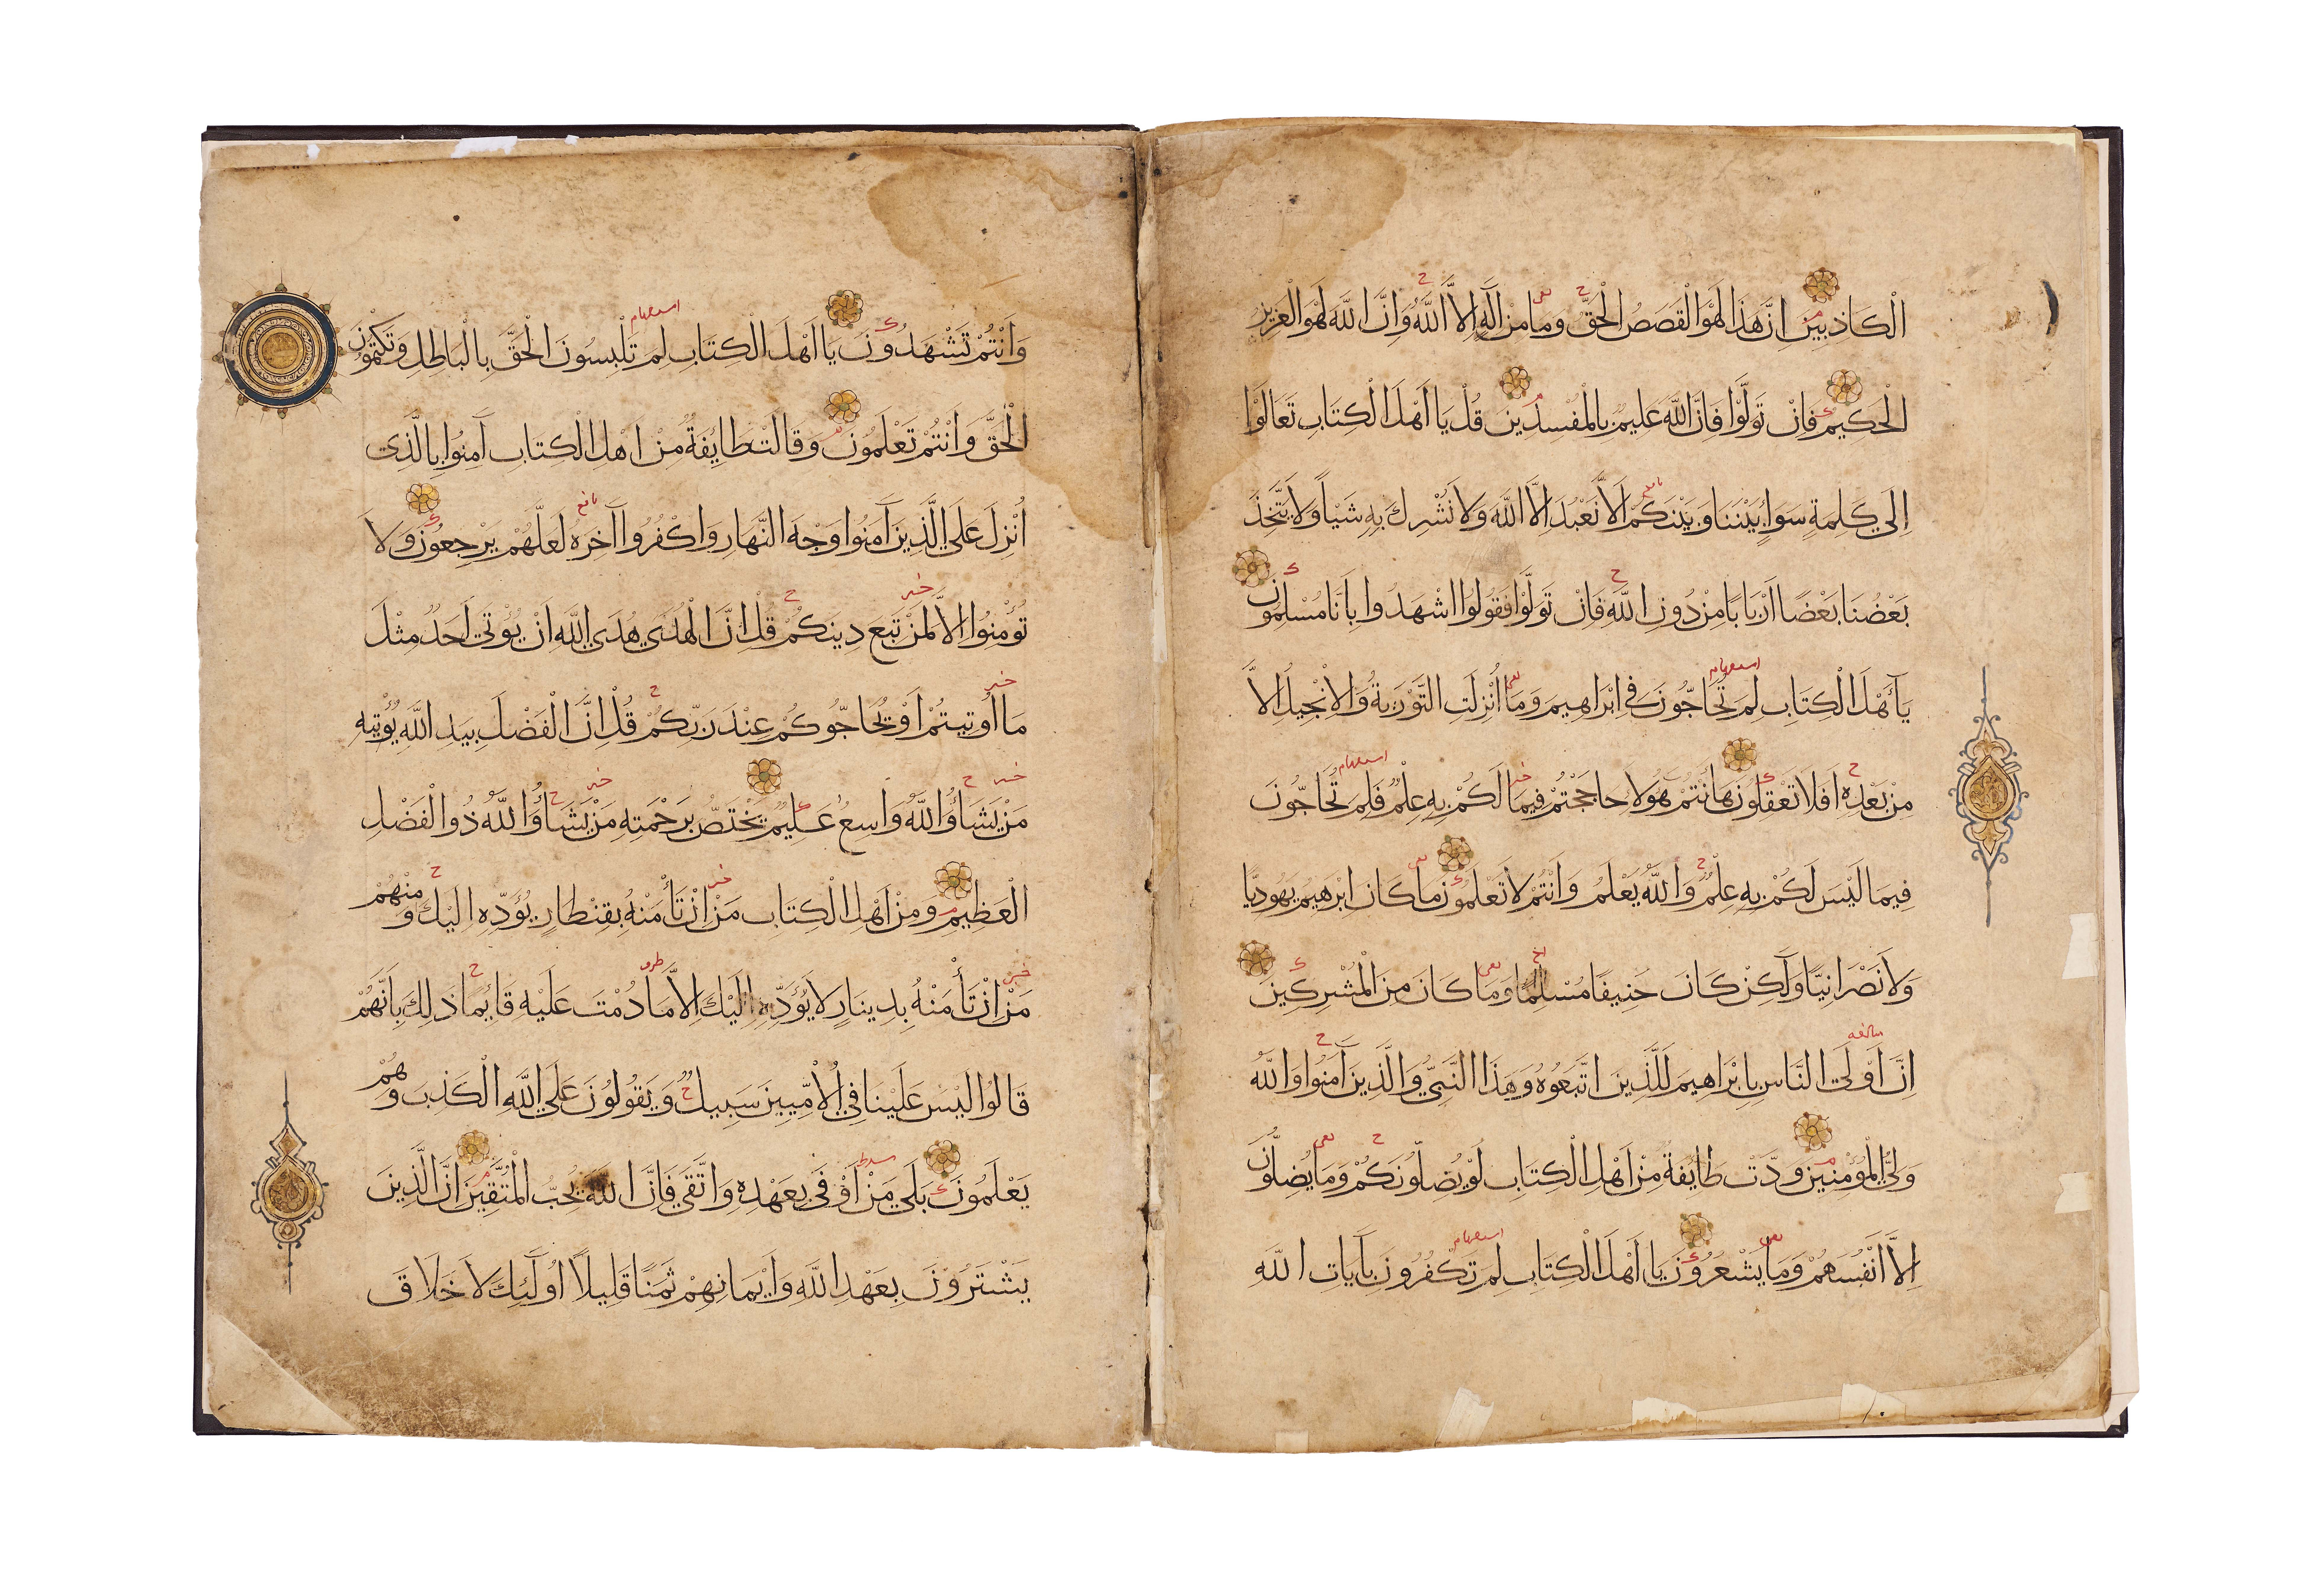 الْكَاذِبِينَ اِنَّ هَذَا لَهُوَ الْقَصَصُ الْحَقُّ وما مِنْ اِلَهٍ اِلاَّ اللَّهُ وَاِنَّ اللَّهَ لَهُوَ الْعَزِيزُ
الْحَكِيمُ فَاِنْ تَوَلَّوْا فَاِنَّ اللَّهَ عَلِيمٌ بِالْمُفْسِدِينَ قُلْ يَا اَهْلَ الْكِتَابِ تَعَالَوْا
اِلَى كَلِمَةٍ سَوَاءٍ بَيْنَنَا وَبَيْنَكُمْ اَلاَّ نَعْبُدَ اِلاَّ اللَّهَ وَلاَ نُشْرِكَ بِهِ شَيْاً وَلاَ يَتَّخِذَ
بَعْضُنَا بَعْضًا اَرْبَابًا مِنْ دُونِ اللَّهِ فَاِنْ تَوَلَّوْا فَقُولُوا اشْهَدُوا بِاَنَّا مُسْلِمُونَ
يَآ اَهْلَ الْكِتَابِ لِمَ تُحَاجُّونَ فِي اِبْرَاهِيمَ وَمَا اُنْزِلَتِ التَّوْرَيةُ وَالاِنْجِيلُ اِلاَّ
مِنْ بَعْدِهِ اَفَلاَ تَعْقِلُونَ هَا اَنْتُمْ هَوُلاَءِ حَاجَجْتُمْ فِيمَا لَكُمْ بِهِ عِلْمٌ فَلِمَ تُحَاجُّونَ
فِيمَا لَيْسَ لَكُمْ بِهِ عِلْمٌ وَاللَّهُ يَعْلَمُ وَاَنْتُمْ لاَ تَعْلَمُونَ مَا كَانَ اِبْرَهِيمُ يَهُودِيًّا
وَلاَ نَصْرَانِيًّا وَلَكِنْ كَانَ حَنِيفًا مُسْلِمًا وَمَا كَانَ مِنَ الْمُشْرِكِينَ
اِنَّ اَوْلَى النَّاسِ بِاِبْرَاهِيمَ لَلَّذِينَ اتَّبَعُوهُ وَهَذَا النَّبِيُّ وَالَّذِينَ آمَنُوا وَاللَّهُ
وَلِيُّ الْمُؤْمِنِينَ وَدَّتْ طَايِفَةٌ مِنْ اَهْلِ الْكِتَابِ لَوْ يُضِلُّونَكُمْ وَمَا يُضِلُّونَ
اِلاَّ اَنْفُسَهُمْ وَمَا يَشْعُرُونَ يَا اَهْلَ الْكِتَابِ لِمَ تَكْفُرُونَ بِآيَاتِ اللَّهِ
وَاَنْتُمْ تَشْهَدُونَ يَا اَهْلَ الْكِتَابِ لِمَ تَلْبِسُونَ الْحَقَّ بِالْبَاطِلِ وَتَكْتُمُونَ
الْحَقَّ وَاَنْتُمْ تَعْلَمُونَ وَقَالَتْ طَايِفَةٌ مِنْ اَهْلِ الْكِتَابِ آمِنُوا بِالَّذِي
اُنْزِلَ عَلَى الَّذِينَ آمَنُوا وَجْهَ النَّهَارِ وَاكْفُرُوا آخِرَهُ لَعَلَّهُمْ يَرْجِعُونَ وَلاَ
تُؤْمِنُوا اِلاَّ لِمَنْ تَبِعَ دِينَكُمْ قُلْ اِنَّ الْهُدَى هُدَى اللَّهِ اَنْ يُؤْتَى اَحَدٌ مِثْلَ
مَا اُوتِيتُمْ اَوْ يُحَاجُّوكُمْ عِنْدَ رَبِّكُمْ قُلْ اِنَّ الْفَضْلَ بِيَدِ اللَّهِ يُؤْتِيهِ
مَنْ يَشَاءُ وَاللَّهُ وَاسِعٌ عَلِيمٌ يَخْتَصُّ بِرَحْمَتِهِ مَنْ يَشَاءُ وَاللَّهُ ذُو الْفَضْلِ
الْعَظِيمِ وَمِنْ اَهْلِ الْكِتَابِ مَنْ اِنْ تَأْمَنْهُ بِقِنْطَارٍ يُؤَدِّهِ اِلَيْكَ وَمِنْهُمْ
مَنْ اِنْ تَأْمَنْهُ بِدِينَارٍ لاَ يُؤَدِّهِ اِلَيْكَ اِلاَّ مَا دُمْتَ عَلَيْهِ قَايِمًا ذَلِكَ بِاَنَّهُمْ
قَالُوا لَيْسَ عَلَيْنَا فِي الْاُمِّيِينَ سَبِيلٌ وَيَقُولُونَ عَلَى اللَّهِ الْكَذِبَ وَهُمْ
يَعْلَمُونَ بَلَى مَنْ اَوْفَى بِعَهْدِهِ وَاتَّقَى فَاِنَّ اللَّهَ يُحِبُّ الْمُتَّقِينَ اِنَّ الَّذِينَ
يَشْتَرُونَ بِعَهْدِ اللَّهِ وَاَيْمَانِهِمْ ثَمَنًا قَلِيلاً اُولَئِكَ لاَ خَلاَقَ